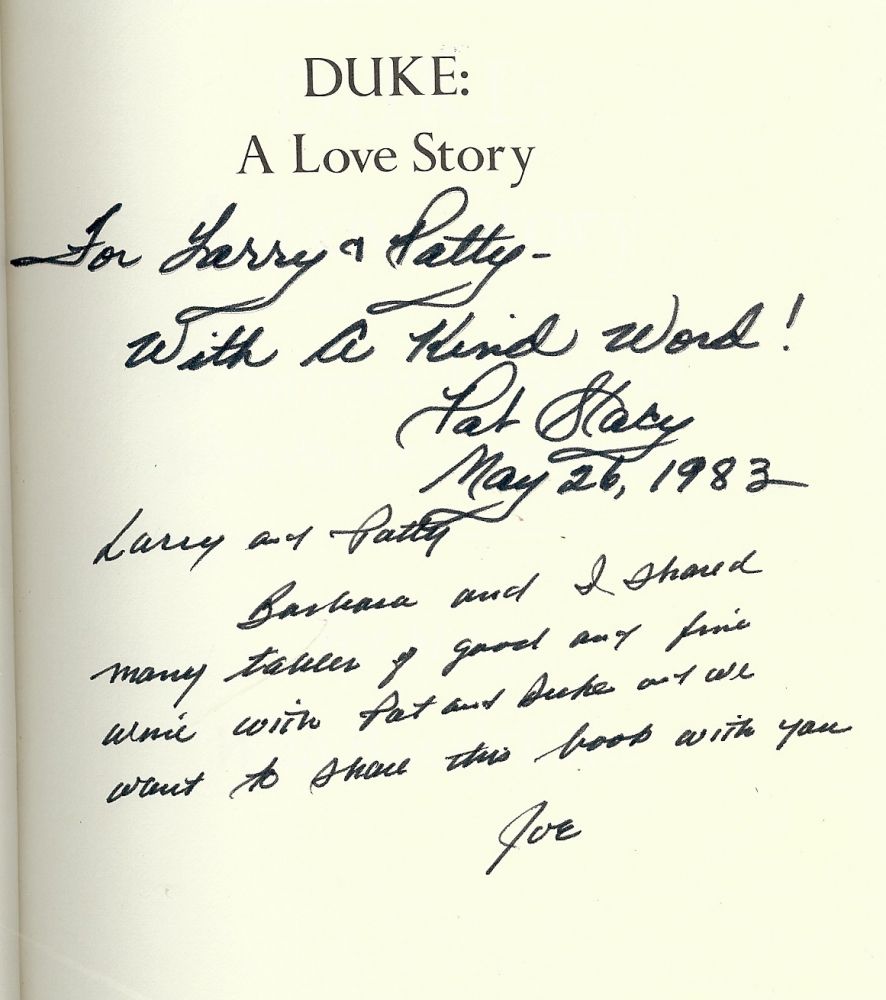 DUKE:
A Love Story
For Larry & Patty-
With A Kind Word!
Pat Stacy
May 26, 1983
Larry and Patty
Barbara and I shared
many tables of good and fine
wine with Pat and Duke and we
want to share this book with you
Joe